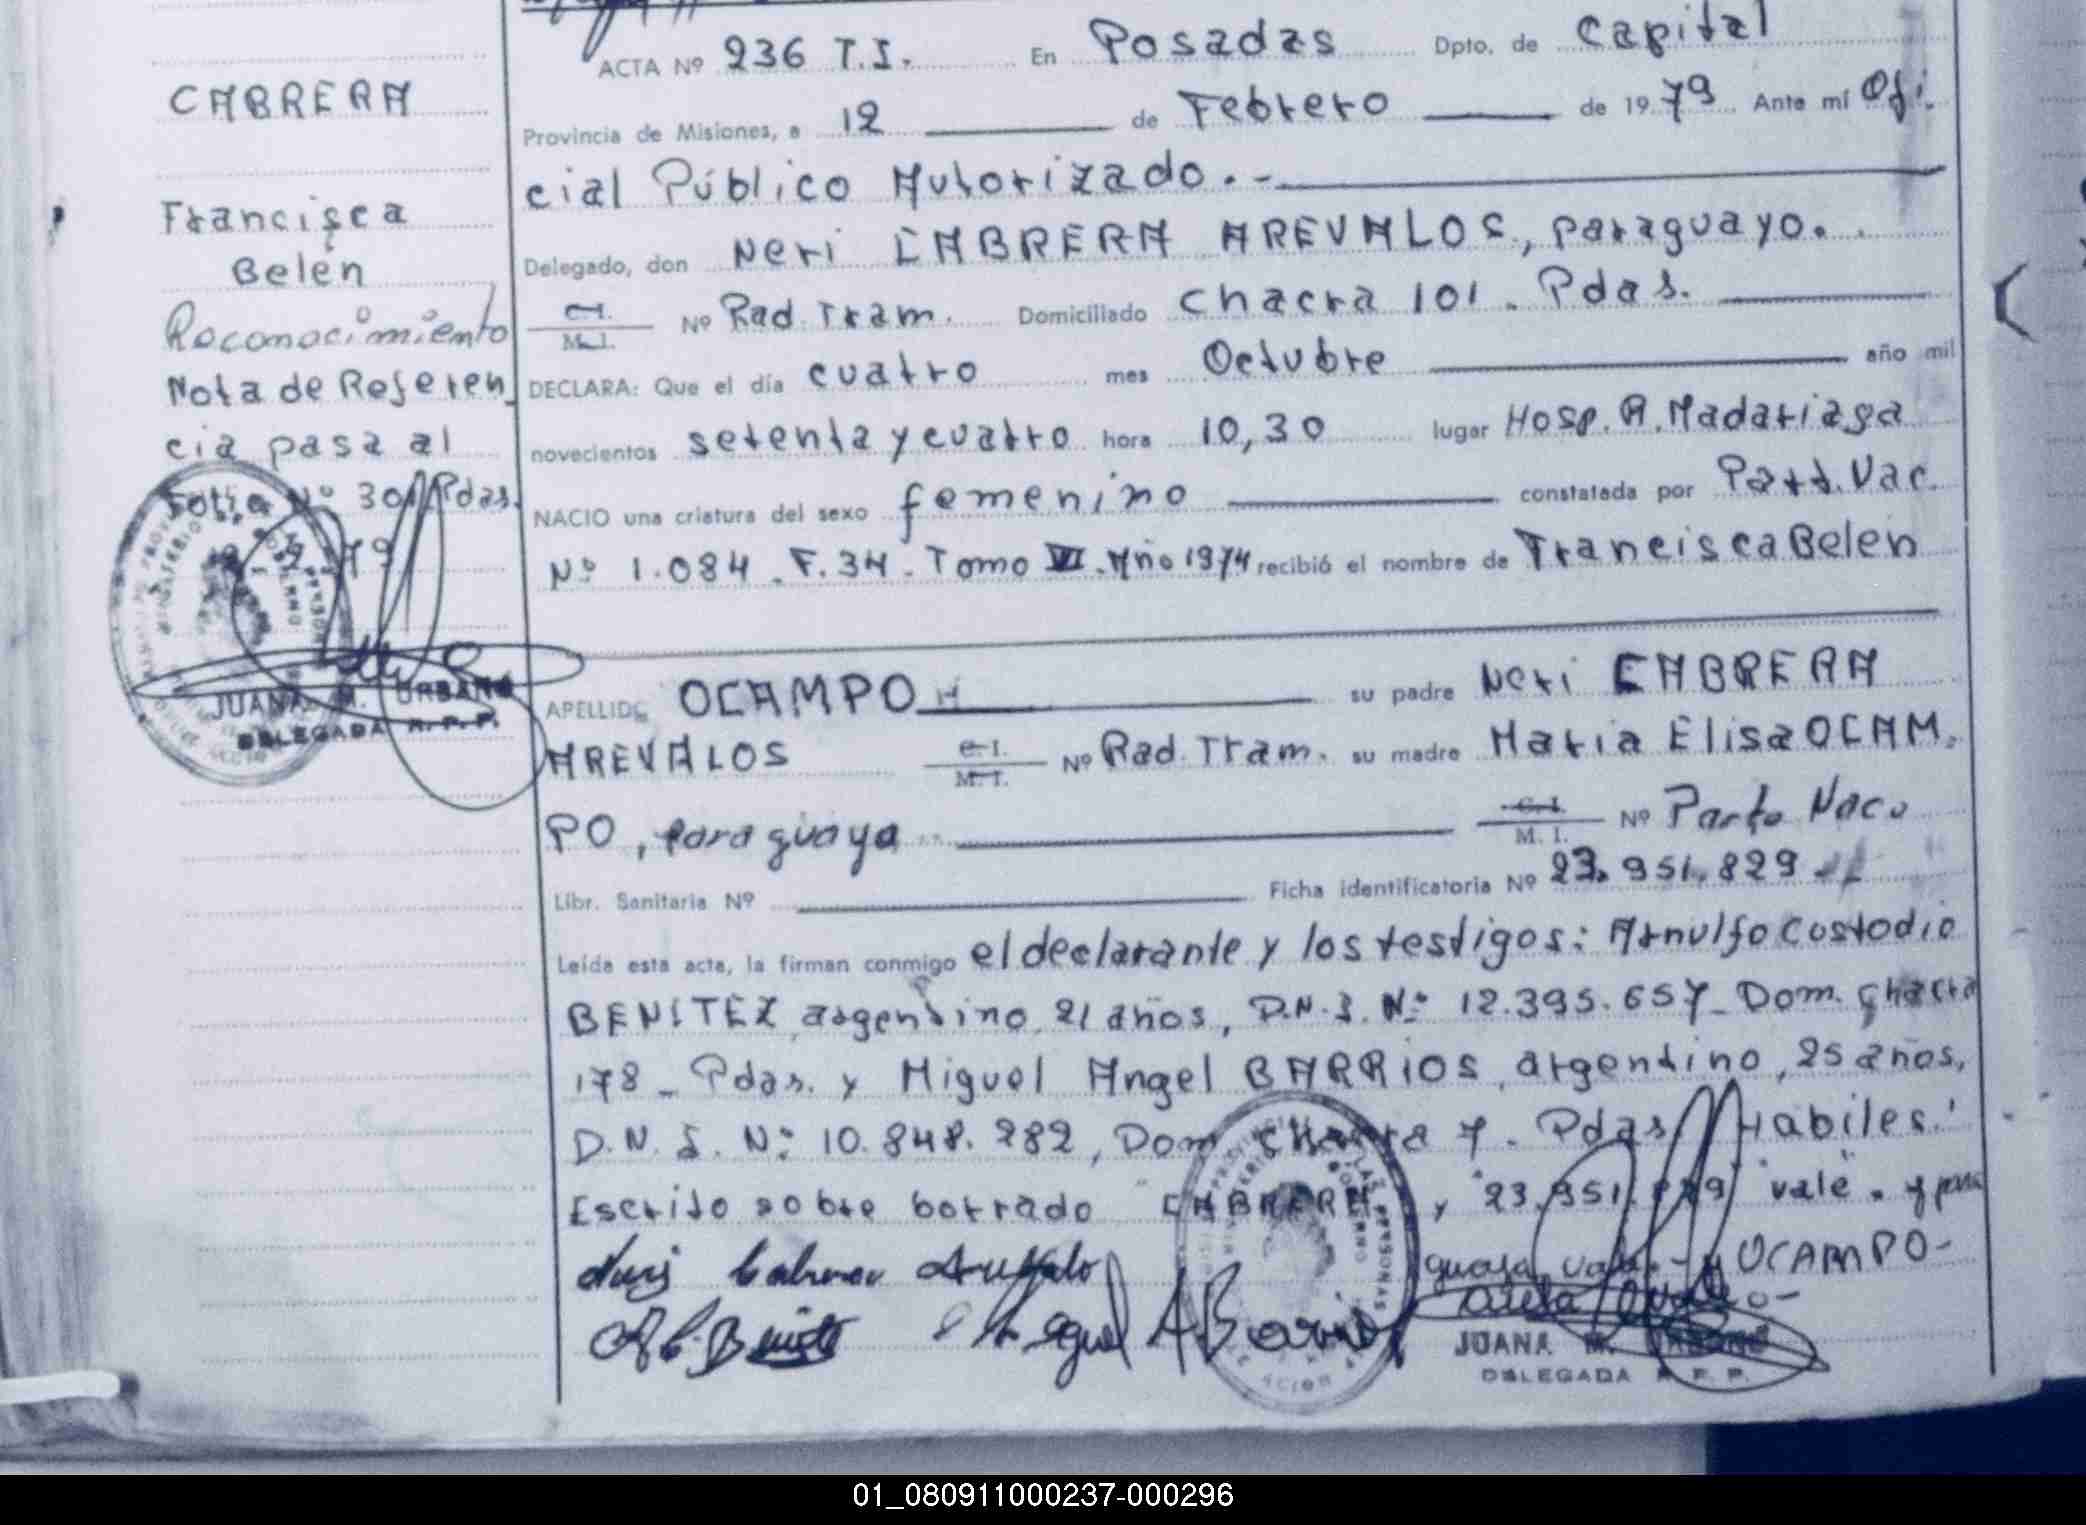 CABRERA
Francisca
Belén
Reconocimiento
Nota de Referen_
cia pasa al
Folio Nº 301 Pdas.
JUANA M. URBANO
DELEGADA R.P.P.
ACTA Nº 236 T.I. En Posadas Dpto. de Capital
Provincia de Misiones, a 12 de Febrero de 1979 Ante mí Ofi.
cial Público Autorizado.-
Delegado, don Neri CABRERA AREVALOS, paraguayo.
C.I.
M.I. Nº Rad. Tram. Domiciliado Chacra 101. Pdas.
DECLARA: Que el día cuatro mes Octubre año mil
novecientos setenta y cuatro hora 10,30 lugar Hosp. R. Madariaga
NACIO una criatura del sexo femenino constatada por Part. Nac.
Nº 1.084. F. 34. Tomo VI. Año 1974 recibió el nombre de Francisca Belén
APELLIDO OCAMPO su padre Neri CABRERA
AREVALOS C.I.
M.I. Nº Rad. Tram. su madre Maria Elisa OCAM.
PO, paraguaya C.I.
M.I. Nº Parto Nac.
Libr. Sanitaria Nº Ficha identificatoria Nº 23.951.829
Leída esta acta, la firman conmigo el declarante y los testigos: Arnulfo Custodio
BENITEZ argentino, 21 años, D.N.I. Nº 12.395.657_ Dom. Chacra
178_ Pdas. y Miguel Angel BARRIOS, argentino, 25 años,
D.N.I. Nº 10.848.282, Dom. Chacra 7. Pdas. Habiles.
Escrito sobre borrado "CABRERA" y "23.951.829" "vale". y para
guaya vale.- y OCAMPO-
Miguel A Barrios
JUANA M. URBANO
DELEGADA R.P.P.
01_080911000237-000296